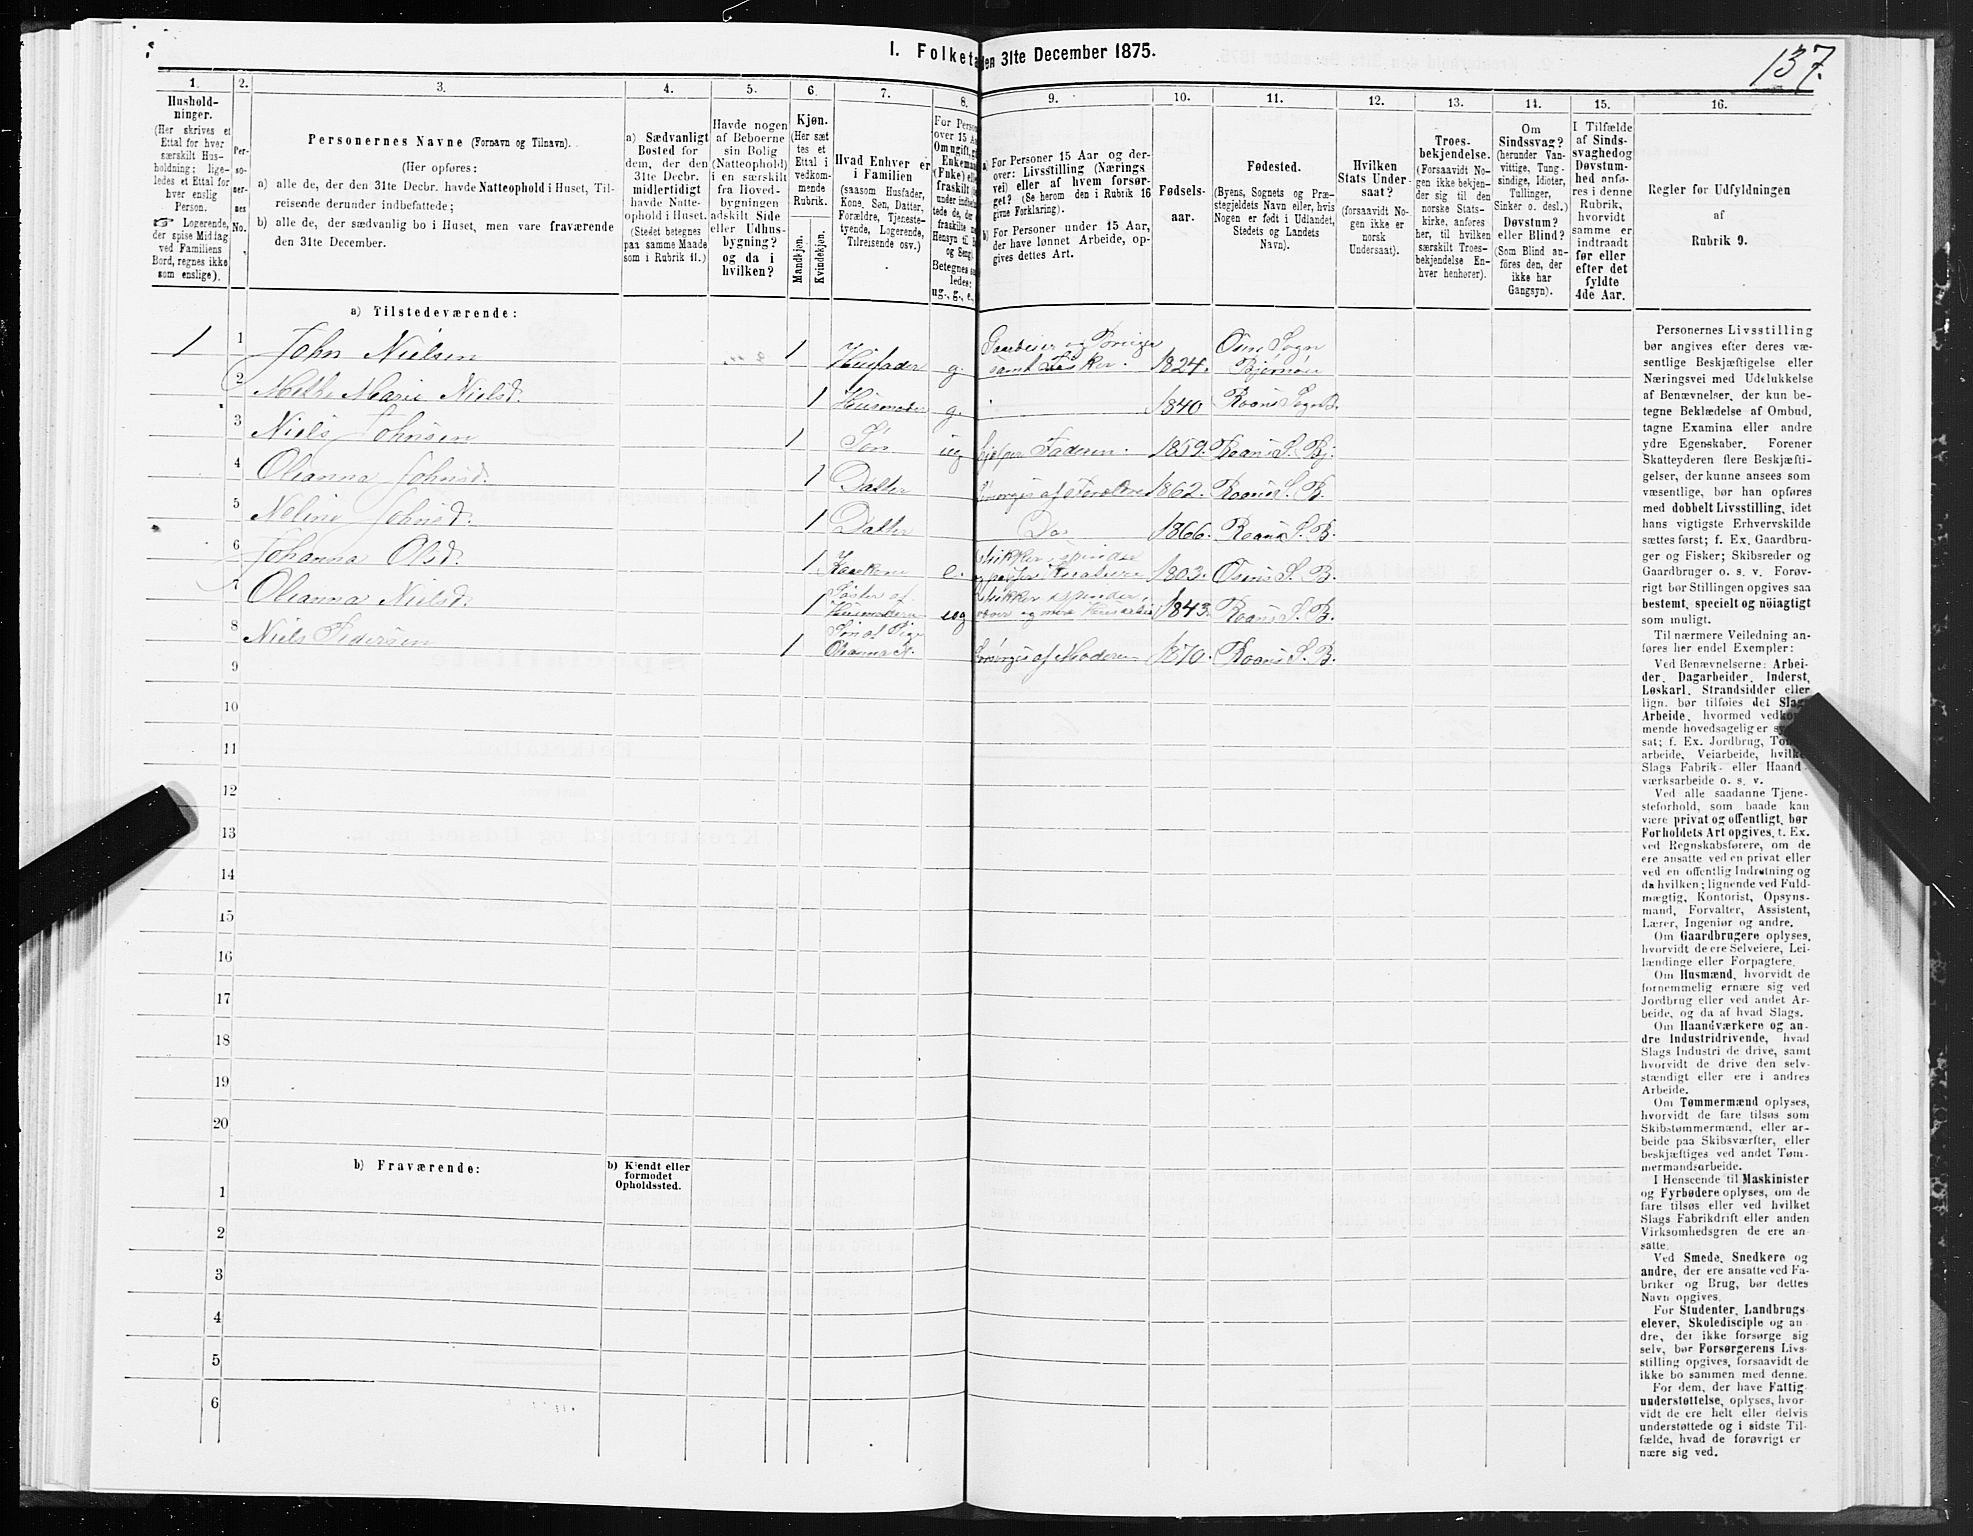 I. Folketa
den 31te December 1875.
137.
1.
Hushold-
ninger.
(Her skrives et
Ettal for hver
særskilt Hus-
holdning; lige-
ledes et Ettal for
hver enslig
Person.
☞ Logerende,
der spise Middag
ved Familiens
Bord, regnes ikke
som enslige).
2.
Per-
so-
ner-
nes
No.
3.
Personernes Navne (Fornavn og Tilnavn).
(Her opføres:
a) alle de, der den 31te Decbr. havde Natteophold i Huset, Til-
reisende derunder indbefattede;
b) alle de, der sædvanlig bo i Huset, men vare fraværende
den 31te December.
4.
a) Sædvanligt
Bosted for
dem, der den
31te Decbr.
midlertidigt
havde Natte-
ophold i Huset.
(Stedet betegnes
paa samme Maade
som i Rubrik 11.)
5.
Havde nogen
af Beboerne
sin Bolig
(Natteophold)
i en særskilt
fra Hoved-
bygningen
adskilt Side
eller Udhus-
bygning?
og da i
hvilken?
6.
Kjøn.
(Her sæt
tes et
Ettal i
vedkom-
mende
Rubrik.
Mandkjøn.
Kvindekjøn.
7.
Hvad Enhver er
i Familien
(saasom Husfader,
Kone, Søn, Datter,
Forældre, Tjeneste-
tyende, Logerende,
Tilreisende osv.)
8.
For Person
over 15 Aa
Om ugift, g
Enkeman
(Enke) ell
fraskilt (
Betegnes saa
ledes:
ug., g., e.,
9.
a) For Personer 15 Aar og der-
over: Livsstilling (Nærings
vei) eller af hvem forsør-
get? (Se herom den i Rubrik 16
givne Forklaring).
b) For Personer under 15 Aar,
der have lønnet Arbeide, op-
gives dettes Art.
10.
Fødsels-
aar.
11.
Fødested.
(Byens, Sognets og Præ-
stegjeldets Navn eller, hvis
Nogen er født i Udlandet,
Stedets og Landets
Navn).
12.
Hvilken
Stats Under-
saat?
(forsaavidt No-
gen ikke er
norsk
Undersaat).
13.
Troes-
bekjendelse.
(Forsaavidt No-
gen ikke bekjen-
der sig til den
norske Stats-
kirke, anføres
her, til hvilken
særskilt Troes-
bekjendelse En-
hver henhører).
14.
Om
Sindssvag?
(herunder Van-
vittige, Tung-
sindige, Idioter,
Tullinger,
Sinker o. desl.)
Døvstum?
eller Blind?
(Som Blind an-
føres den, der
ikke har
Gangsyn).
15.
I Tilfælde
af Sinds-
svaghed og
Døvstum-
hed anfø-
res i denne
Rubrik,
hvorvidt
samme er
indtraadt
før eller
efter det
fyldte
4de Aar.
16.
Regler for Udfyldningen
af
Rubrik 9.
a) Tilstedeværende:
1 1 John Nielsen 1 Husfader g. samt Fisker. 1824. Sogn
2 Nielsd. 1 Husmoder g. 1840 Roans Sogn B.
3 Niels Johnsen 1 Søn ug Faderen. 1859. Roans S. Bj.
4 Oleanna Johnsd. 1 Datter Forsørges af Forældre 1862. Roans S. B.
5 Neline Johnsd. 1 Datter Do 1866. Roans S. B.
6 Johanna Olsd. 1 e. Strikker, spinder 1803. Osens S. B.
7 Oleanna Nielsd. 1 Søster af Husmoderen ug Strikker spinder, 1843. Roans S. B.
8 Niels Pedersen 1 Søn af Pige Oleanna N. Forsørges af Moderen 1870. Roans S. B.
9
10
11
12
13
14
15
16
17
18
19
20
b) Fraværende:
b) Kjendt eller
formodet
Opholdssted.
1
2
3
4
5
6
Personernes Livsstilling
bør angives efter deres væ-
sentlige Beskjæftigelse eller
Næringsvei med Udelukkelse
af Benævnelser, der kun be-
tegne Beklædelse af Ombud,
tagne Examina eller andre
ydre Egenskaber. Forener
Skatteyderen flere Beskjæfti-
gelser, der kunne ansees som
væsentlige, bør han opføres
med dobbelt Livsstilling, idet
hans vigtigste Erhvervskilde
sættes først; f. Ex. Gaardbru-
ger og Fisker; Skibsreder og
Gaardbruger o. s. v. Forøv-
rigt bør Stillingen opgives saa
bestemt, specielt og nöiagtigt
som muligt.
Til nærmere Veiledning an-
føres her endel Exempler:
Ved Benævnelserne: Arbei-
der, Dagarbeider, Inderst,
Løskarl, Strandsidder eller
lign. bør tilføies det Slags
Arbeide, hvormed vedkom-
mende hovedsagelig er sys
sat; f. Ex. Jordbrug, Tom
arbeide, Veiarbeide, hvilke
Slags Fabrik- eller Haand-
værksarbeide o. s. v.
Ved alle saadanne Tjene-
steforhold, som baade kan
være privat og offentligt, bør
Forholdets Art opgives, t. Ex.
ved Regnskabsførere, om de
ere ansatte ved en privat eller
ved en offentlig Indretning og
da hvilken; lignende ved Fuld-
mægtig, Kontorist, Opsyns-
mand, Forvalter, Assistent,
Lærer, Ingeniør og andre.
Om Gaardbrugere oplyses,
hvorvidt de ere Selveiere, Lei-
lændinge eller Forpagtere.
Om Husmænd, hvorvidt de
fornemmelig ernære sig ved
Jordbrug eller ved andet Ar-
beide, og da af hvad Slags.
Om Haandværkere og an-
dre Industridrivende, hvad
Slags Industri de drive, samt
hvorvidt de drive den selv-
stændigt eller ere i andres
Arbeide.
Om Tømmermænd oplyses,
hvorvidt de fare tilsøs som
Skibstømmermænd, eller ar-
beide paa Skibsværfter, eller
beskjæftiges ved andet Tøm-
mermandsarbeide.
I Henseende til Maskinister
og Fyrbødere oplyses, om de
fare tilsøs eller ved hvilket
Slags Fabrikdrift eller anden
Virksomhedsgren de ere an-
satte.
Ved Smede, Snedkere og
andre, der ere ansatte ved Fa-
briker og Brug, bør dettes
Navn opgives.
For Studenter, Landbrugs
elever, Skoledisciple og an
dre, der ikke forsørge sig
selv, bør Forsørgerens Livs-
stilling opgives, forsaavidt de
ikke bo sammen med denne.
For dem, der have Fattig
understøttelse, oplyses, hvor
vidt de ere helt eller delvis
understøttede og i sidste Til-
fælde, hvad de forøvrigt er
nære sig ved.